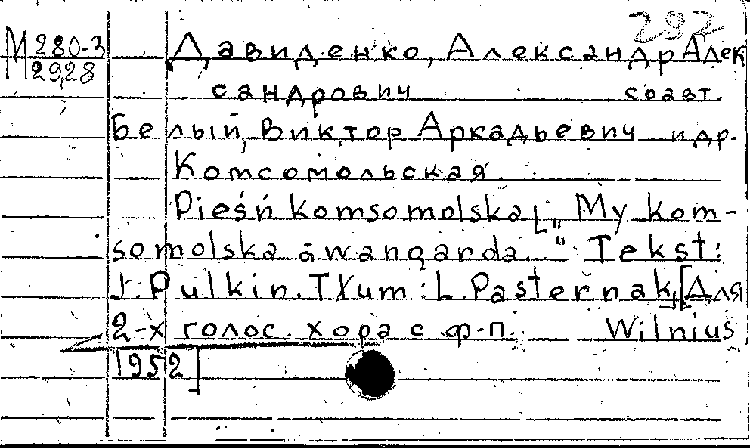 292
М 280-3 Давиденко, Александр Алек
29,28
сандрович соавт.
Белый, Виктор Аркадьевич и др.
Комсомольская
Pieśń komsomolska[„My kom-
somolska awangarda..." Tekst:
J. Pulkin. Tłum: L. Pasternak,[Для
2-х голос. хора с ф-п. Wilnius
1952]